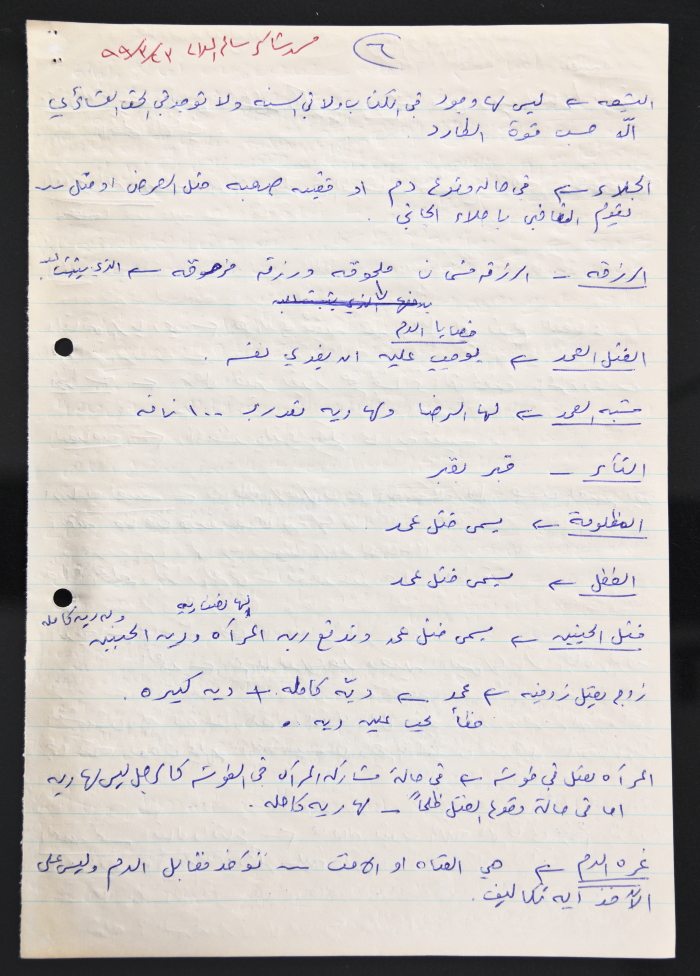 ٦
البشعه ← ليس لها وجود في الكتاب ولا في السنه ولا توجد في الحق العشائري
الا حسب قوة الطارد
الجلاء ← في حاله وقوع دم او قضيه صعبه مثل العرض او مثل
يقوم القاضي باجلاء الجاني .
الرزقه – الرزقه قسمان ملحوقه ورزقه مزهوقه ← الذي يثبت
قضايا الدم
القتل العمد ← يوجب عليه ان يفدي نفسه .
شبه العمد ← لها الرضا ولها ديه تقدر بـ ١٠٠ ناقه
الثأر – قبر بقبر
المظلومة ← يسمى قتل عمد
الطفل ← يسمى قتل عمد
لها نصف ديه
قتل الجنين ← يسمى قتل عمد وتدفع ديه المرأه وديه الجنين وله ديه كامله
زوج يقتل زوجته ← عمد ← ديّه كامله + ديه كبيره .
خطأ يجب عليه ديه .
المرأه تقتل في طوشه ← في حالة مشاركه المرأه في الطوشه كالرجل ليس لها ديه
اما في حالة وقوع القتل ظلماً – لها ديه كامله .
غره الدم ← هي الفتاه او الامت – تؤخذ مقابل الدم وليس على
الأخذ ايه تكاليف .